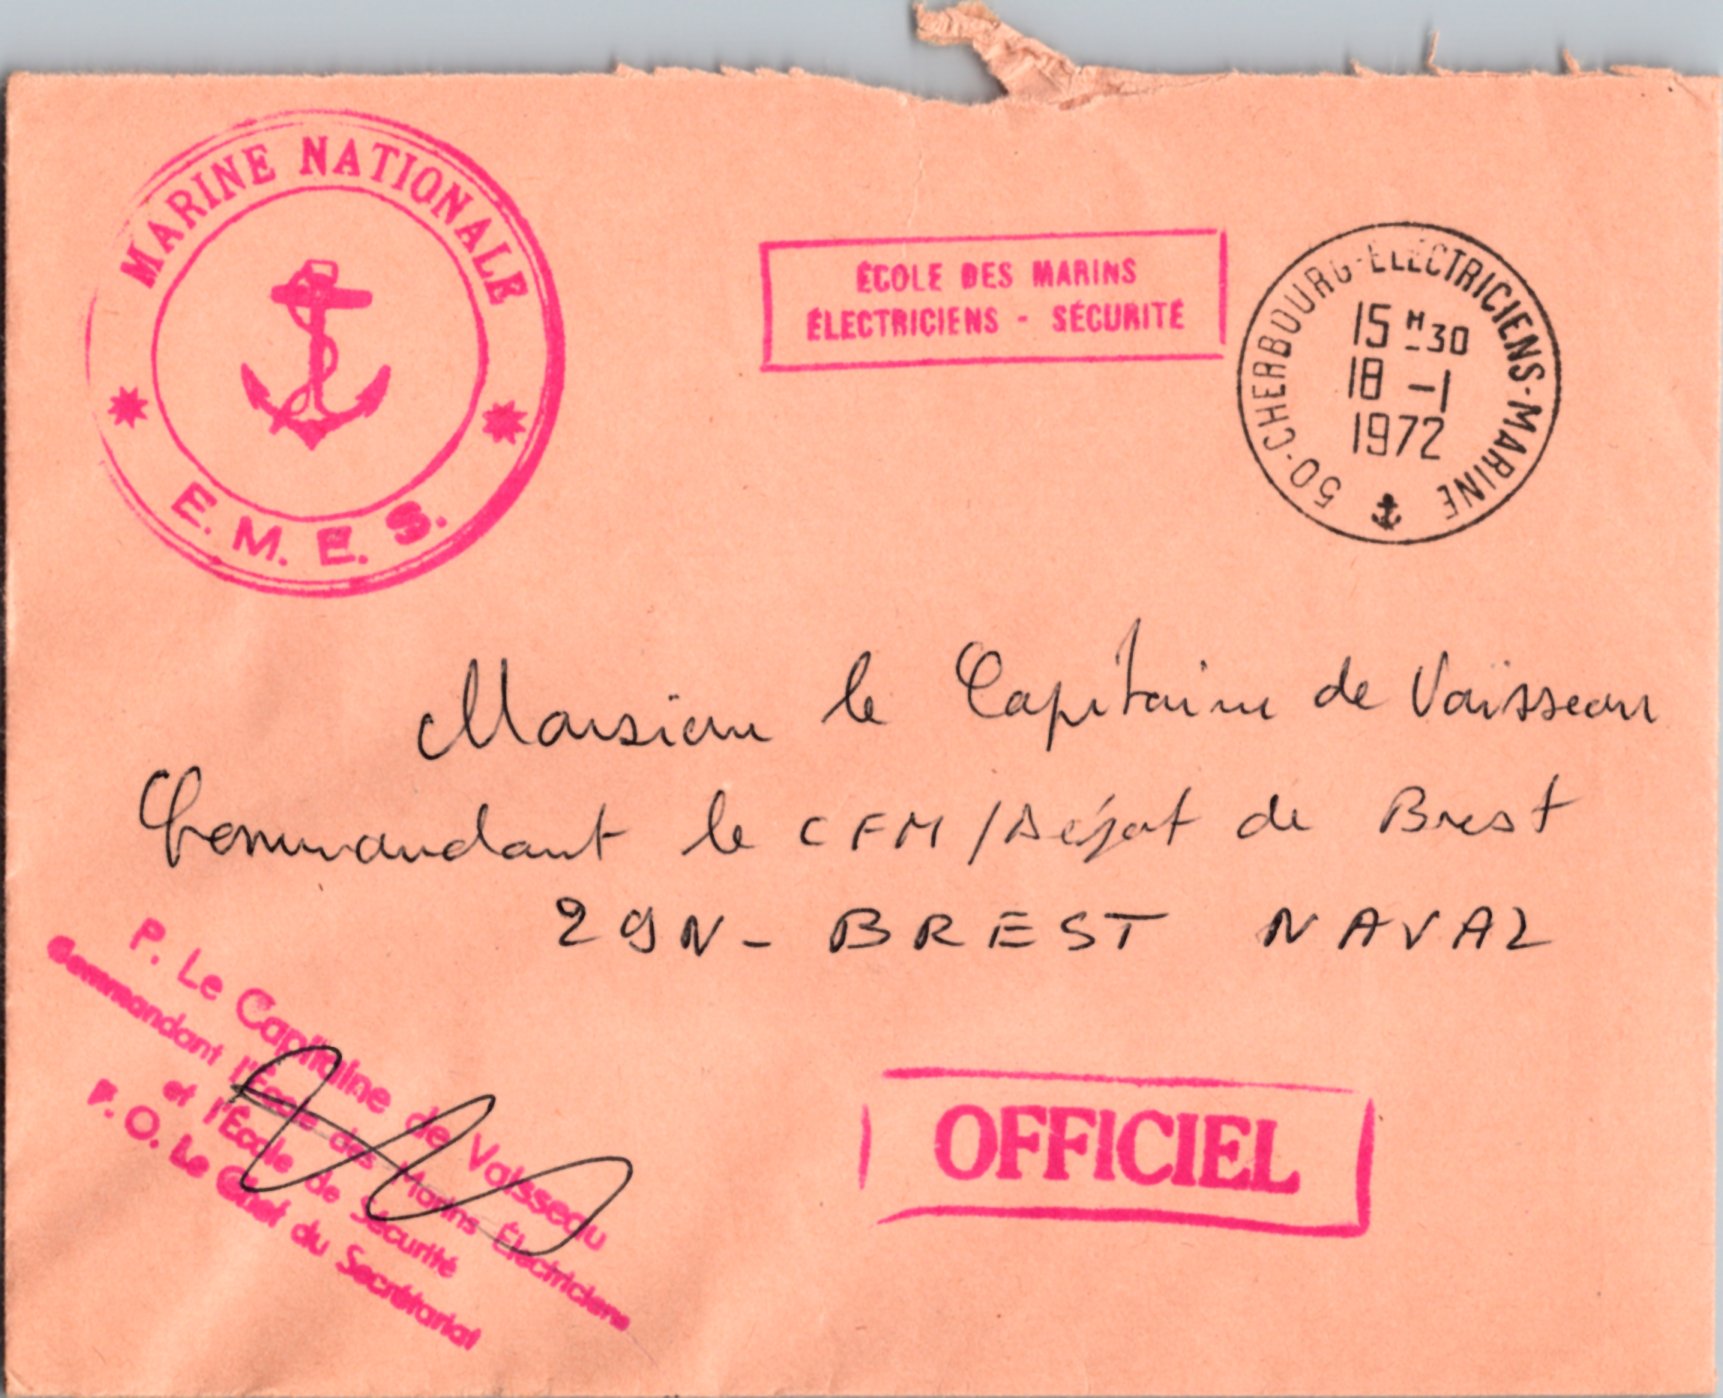 MARINE NATIONALE
E. M. E. S.
ÉCOLE DES MARINS
ÉLECTRICIENS - SÉCURITÉ
50-CHERBOURG-ELECTRICIENS-MARINE
15 H 30
18 -1
1972
Monsieur le Capitaine de Vaisseau
Commandant le CFM / Dépôt de Brest
29N - BREST NAVAL
P. Le Capitaine de Vaisseau
Commandant l'École des Marins Électriciens
et l'École de Sécurité
P. O. Le Chef du Secrétariat
OFFICIEL